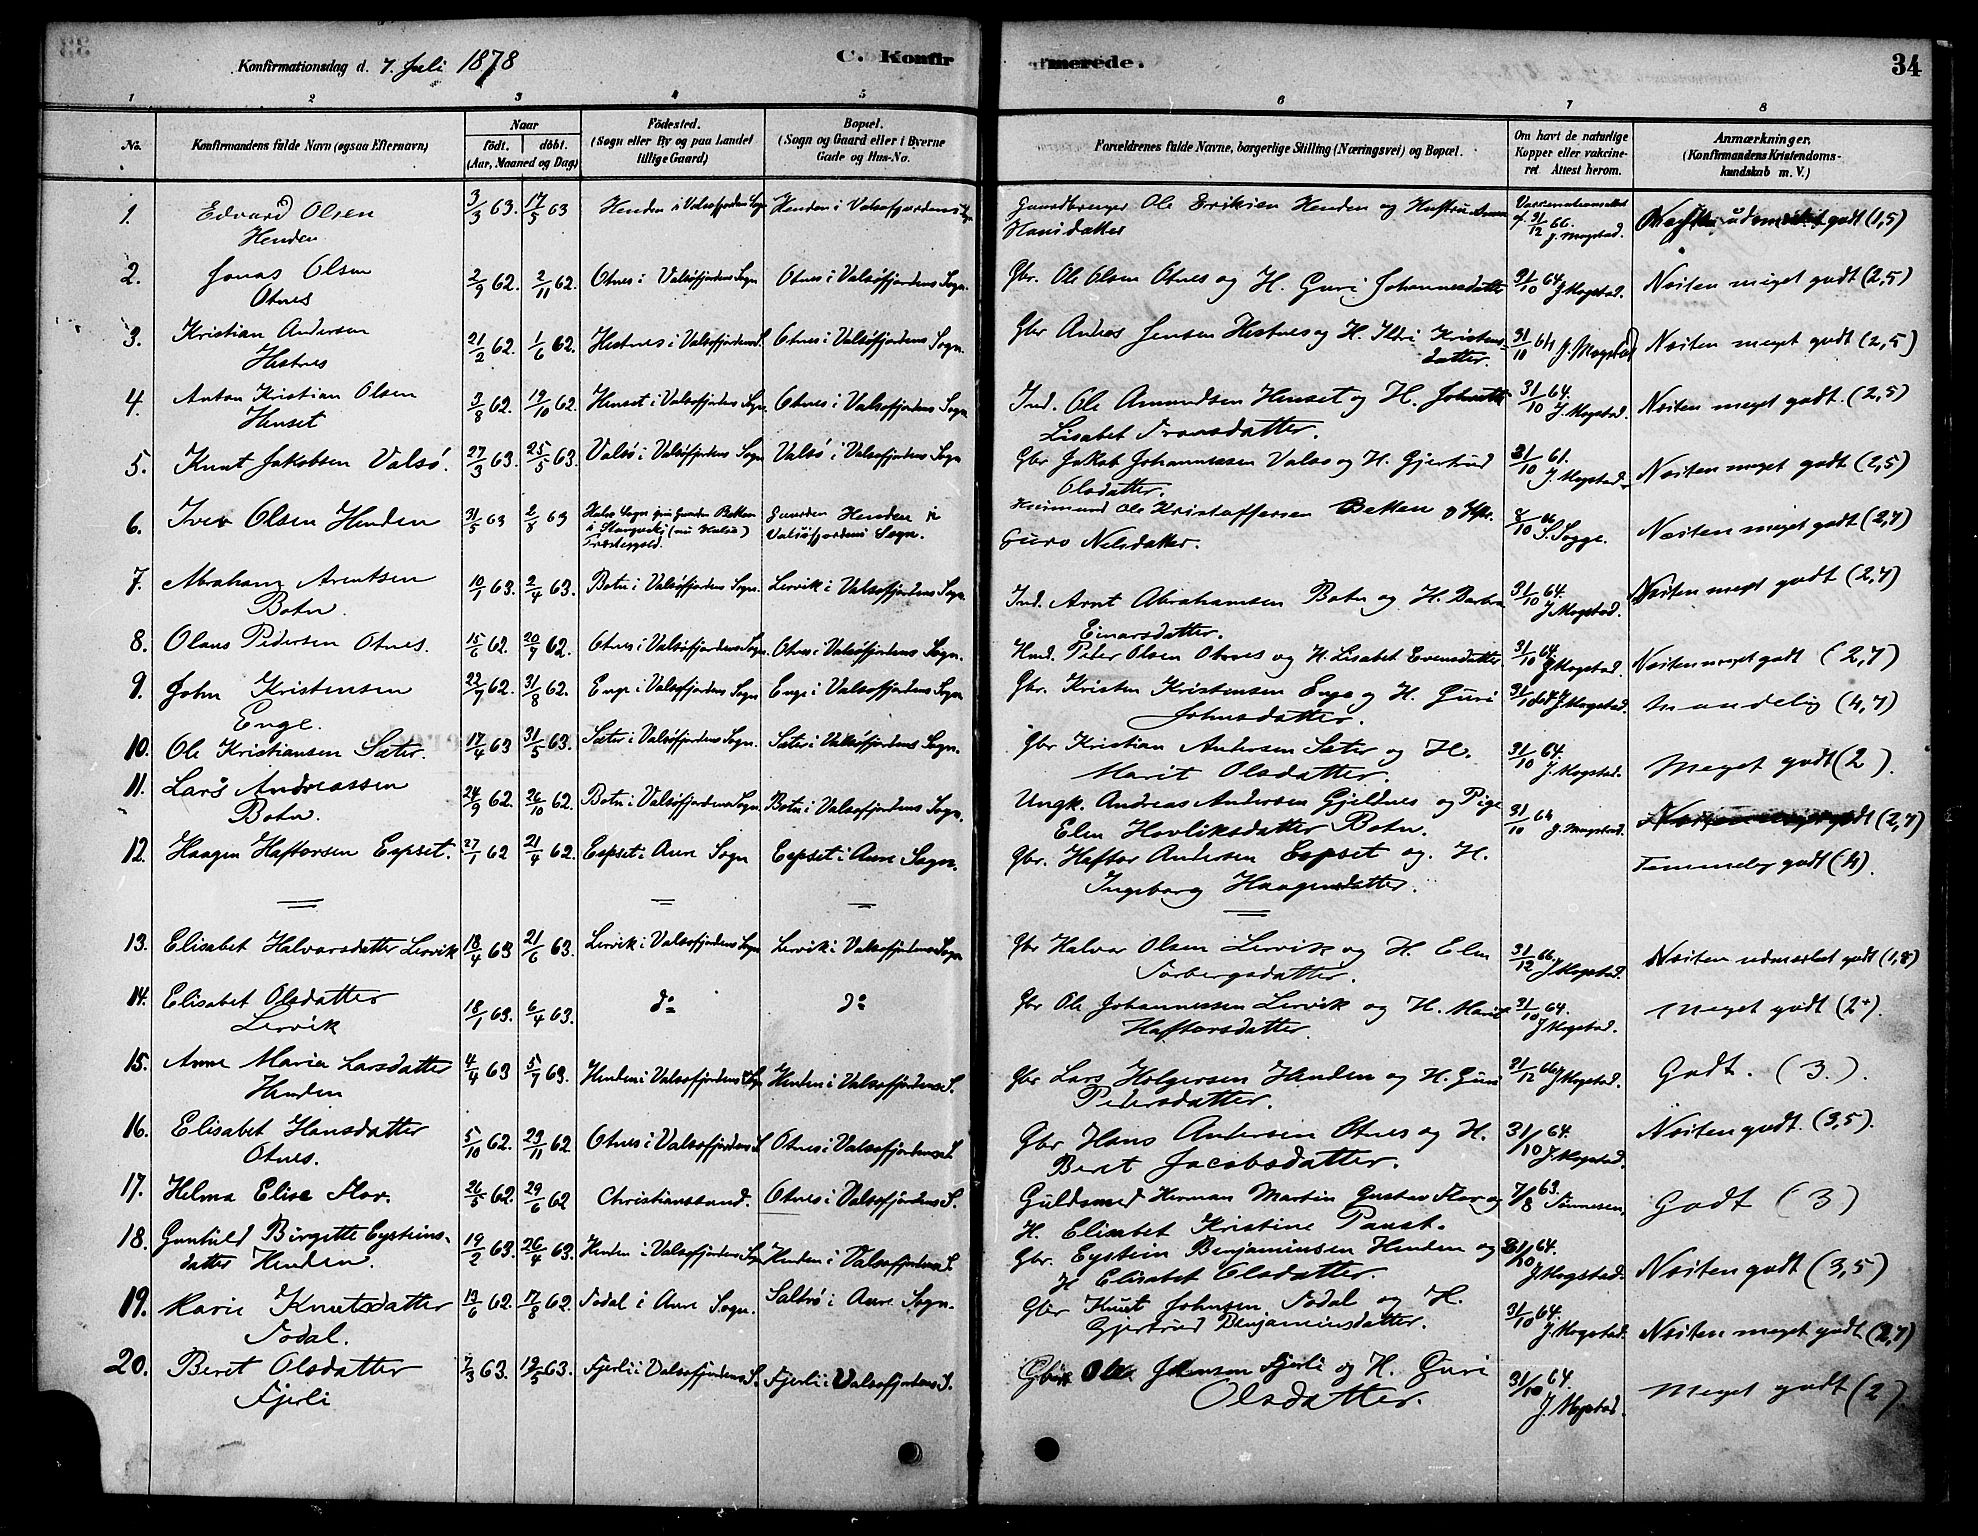 Konfirmationsdag d. 7. Juli 1878
C. Konfirmerede.
34
1 2 3 4 5 6 7 8
No.
Konfirmandens fulde Navn (ogsaa Efternavn)
Naar
födt. döbt.
(Aar, Maaned og Dag)
Födested.
(Sogn eller By og paa Landet
tillige Gaard)
Bopæl.
(Sogn og Gaard eller i Byerne
Gade og Hus-No.
Forældrenes fulde Navne, borgerlige Stilling (Næringsvei) og Bopæl.
Om havt de naturlige
Kopper eller vakcine-
ret Attest herom.
Anmærkninger.
(Konfirmandens Kristendoms-
kundskab m. V.)
1. Edvard Olsen 3/3 63. 17/5 63 Henden i Valsøfjordens Sogn Henden i Valsøfjordens Sogn Gaardbruger Ole Eriksen Henden og Hustru Anne
Henden Hansdatter 31/12 66. J. Mogstad. udmærket godt (1,5)
2. Jonas Olsen 2/9 62. 2/11 62. Otnes i Valsøfjordens Sogn Otnes i Valsøfjordens Sogn. Gbr. Ole Olsen Otnes og H. Guri Johannesdatter 31/10 64 J Mogstad. Næsten meget godt (2,5)
Otnes
3. Kristian Andersen 21/2 62. 1/6 62. Hestnes i Valsøfjordens S. Otnes i Valsøfjordens Sogn. Gbr Anders Jensen Hestnes og H. Ildri Kristens- 31/10 64 J. Mogstad Næsten meget godt (2,5)
Hestnes datter.
4. Anton Kristian Olsen 3/8 62. 19/10 62. Henset i Valsøfjordens Sogn. Otnes i Valsøfjordens Sogn Ind. Ole Amundsen Henset og H. 31/10 64. J. Mogstad. Næsten meget godt. (2,5)
Henset Lisabet Tronsdatter.
5. Knut Jakobsen Valsø. 27/3 63. 25/5 63. Valsø i Valsøfjordens Sogn Valsø i Valsøfjordens Sogn Gbr Jakob Johannessen Valsø og H. Gjertrud 31/10 61. J. Mogstad. Næsten meget godt (2,5)
Olsdatter.
6. Iver Olsen Henden 31/5 63 2/8 63 Halsø Sogn Gaarden Betten
i Stangvik (nu Halsø)
Præstegjeld. Gaarden Henden i
Valsøfjordens Sogn. Ole Kristoffersen Betten
Guro Nelsdatter. 8/10 S. Sogge. Næsten meget godt (2,7)
7. Abraham Arentsen 10/1 63. 2/4 63. Botn i Valsøfjordens Sogn. Lervik i Valsøfjordens Sogn. Ind. Arnt Abrahamsen Botn og H. 31/10 64. J. Mogstad. Næsten meget godt (2,7)
Botn. Einarsdatter.
8. Olaus Pedersen Otnes. 15/6 62. 20/7 62. Otnes i Valsøfjordens Sogn. Otnes i Valsøfjordens Sogn. Peter Olsen Otnes og H. Lisabet Evensdatter 31/10 64. J Mogstad. Næsten meget godt (2,7)
9. John Kristensen 22/7 62. 31/8 62. Enge i Valsøfjordens Sogn Enge i Valsøfjordens Sogn Gbr. Kristen Kristensen Enge og H. Guri 31/10 64 J Mogstad. Maadelig (4,7)
Enge. Johnsdatter.
10. Ole Kristiansen Sæter. 17/4 63 31/5 63. Sæter i Valsøfjordens Sogn. Sæter i Valsøfjordens Sogn. Gbr Kristian Andersen Sæter og H. 31/10 64. J. Mogstad. Meget godt (2).
Marit Olsdatter.
11. Lars Andreassen 24/9 62. 26/10 62. Botn i Valsøfjordens Sogn. Botn i Valsøfjordens Sogn. Ungk. Andreas Andersen Gjeldnes og Pige 31/10 64 J. Mogstad. Næsten meget godt (2,7)
Botn. Elen Hovliksdatter Botn.
12. Haagen Haftorsen Espset. 27/1 62 21/4 62. Espset i Aure Sogn Espset i Aure Sogn. Gbr. Haftor Andersen Espset og H. Temmelig godt (4).
Ingeborg Haagensdatter.
13. Elisabet Halvarsdatter Lervik 18/4 63 21/6 63. Lervik i Valsøfjordens Sogn Lervik i Valsøfjordens Sogn. Gbr Halvar Olsen Lervik og H. Elen 31/12 66. J Mogstad. Næsten udmærket godt (1,8)
Torbergsdatter.
14. Elisabet Olsdatter 18/1 63. 6/4 63. do do Gbr Ole Johannessen Lervik og H. Marit 31/10 64. J Mogstad. Meget godt (2+).
Lervik Haftorsdatter.
15. Anne Maria Larsdatter 4/4 63 5/7 63. Henden i Valsøfjordens Sogn Henden i Valsøfjordens S. Gbr Lars Holgersen Henden og H. Guri 31/12 66 J Mogstad. Godt. (3.).
Henden Pedersdatter.
16. Elisabet Hansdatter 5/10 62. 23/11 62 Otnes i Valsøfjordens S. Otnes i Valsøfjordens S. Gbr Hans Andersen Otnes og H. 31/10 64. J. Mogstad. Næsten godt. (3,5).
Otnes. Beret Jacobsdatter.
17. Helma Elise Flor. 26/5 62. 29/6 62 Christianssund. Otnes i Valsøfjordens S. Guldsmed Herman Martin Gustav Flor og 7/8 63. Tönnesen. Godt (3)
H. Elisabet Kristine Paust.
18. Gunhild Birgitte Eysteins- 19/2 63. 26/4 63. Henden i Valsøfjordens Sogn Henden i Valsøfjordens S. Gbr. Eystein Benjaminsen Henden og 31/10 64. J Mogstad. Næsten godt (3,5)
datter Henden. H Elisabet Olsdatter.
19. Marie Knutsdatter 13/6 62. 17/8 62. Todal i Aure Sogn. Saltrø i Aure Sogn. Gbr Knut Johnsen Todal og H. 31/10 64. J. Mogstad. Næsten meget godt (2,7)
Todal. Gjertrud Benjaminsdatter.
20. Beret Olsdatter 7/3 63. 19/5 63. Fjerli i Valsøfjordens S. Fjerli i Valsøfjordens S. Gbr Ole Johnsen Fjerli og H. Guri 31/10 64. J. Mogstad. Meget godt (2).
Fjerli Olsdatter.